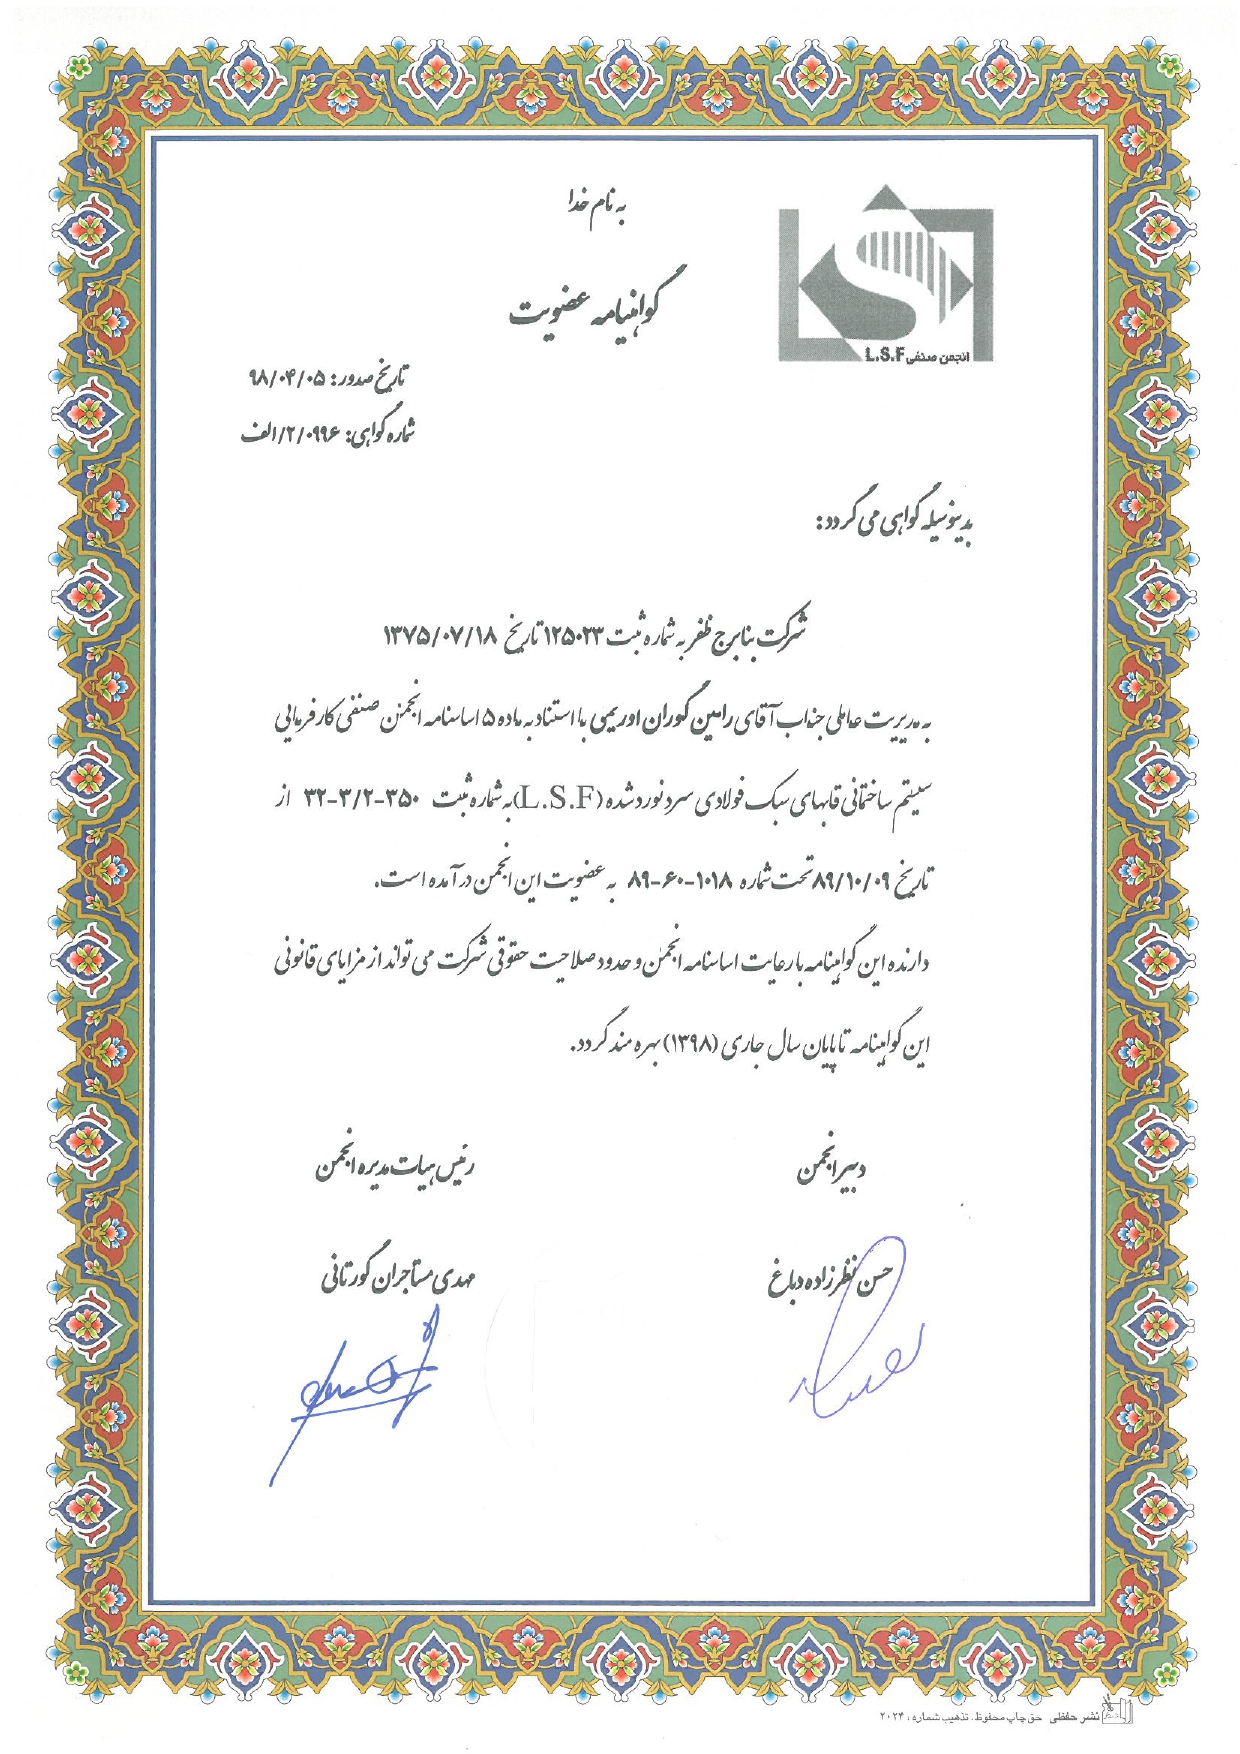 به نام خدا
انجمن صنفی L.S.F
گواهینامه عضویت
تاریخ صدور: ۹۸/۰۴/۰۵
شماره گواهی: ۲/۰۹۹۶/الف
بدینوسیله گواهی می گردد:
شرکت بنابرج ظفر به شماره ثبت ۱۲۵۰۲۳ تاریخ ۱۳۷۵/۰۷/۱۸
به مدیریت عاملی جناب آقای رامین گوران اوریمی با استناد به ماده ۵ اساسنامه انجمن صنفی کارفرمایی
سیستم ساختمانی قابهای سبک فولادی سرد نورد شده (L.S.F) به شماره ثبت ۳۵۰-۳/۲-۳۲ از
تاریخ ۸۹/۱۰/۰۹ تحت شماره ۱۰۱۸-۶۰-۸۹ به عضویت این انجمن در آمده است.
دارنده این گواهینامه با رعایت اساسنامه انجمن و حدود صلاحیت حقوقی شرکت می تواند از مزایای قانونی
این گواهینامه تا پایان سال جاری (۱۳۹۸) بهره مند گردد.
دبیر انجمن
رئیس هیات مدیره انجمن
حسن نظرزاده دباغ
مهدی مستاجران گورتانی
نشر حفظی حق چاپ محفوظ. تذهیب شماره: ۲۰۲۴